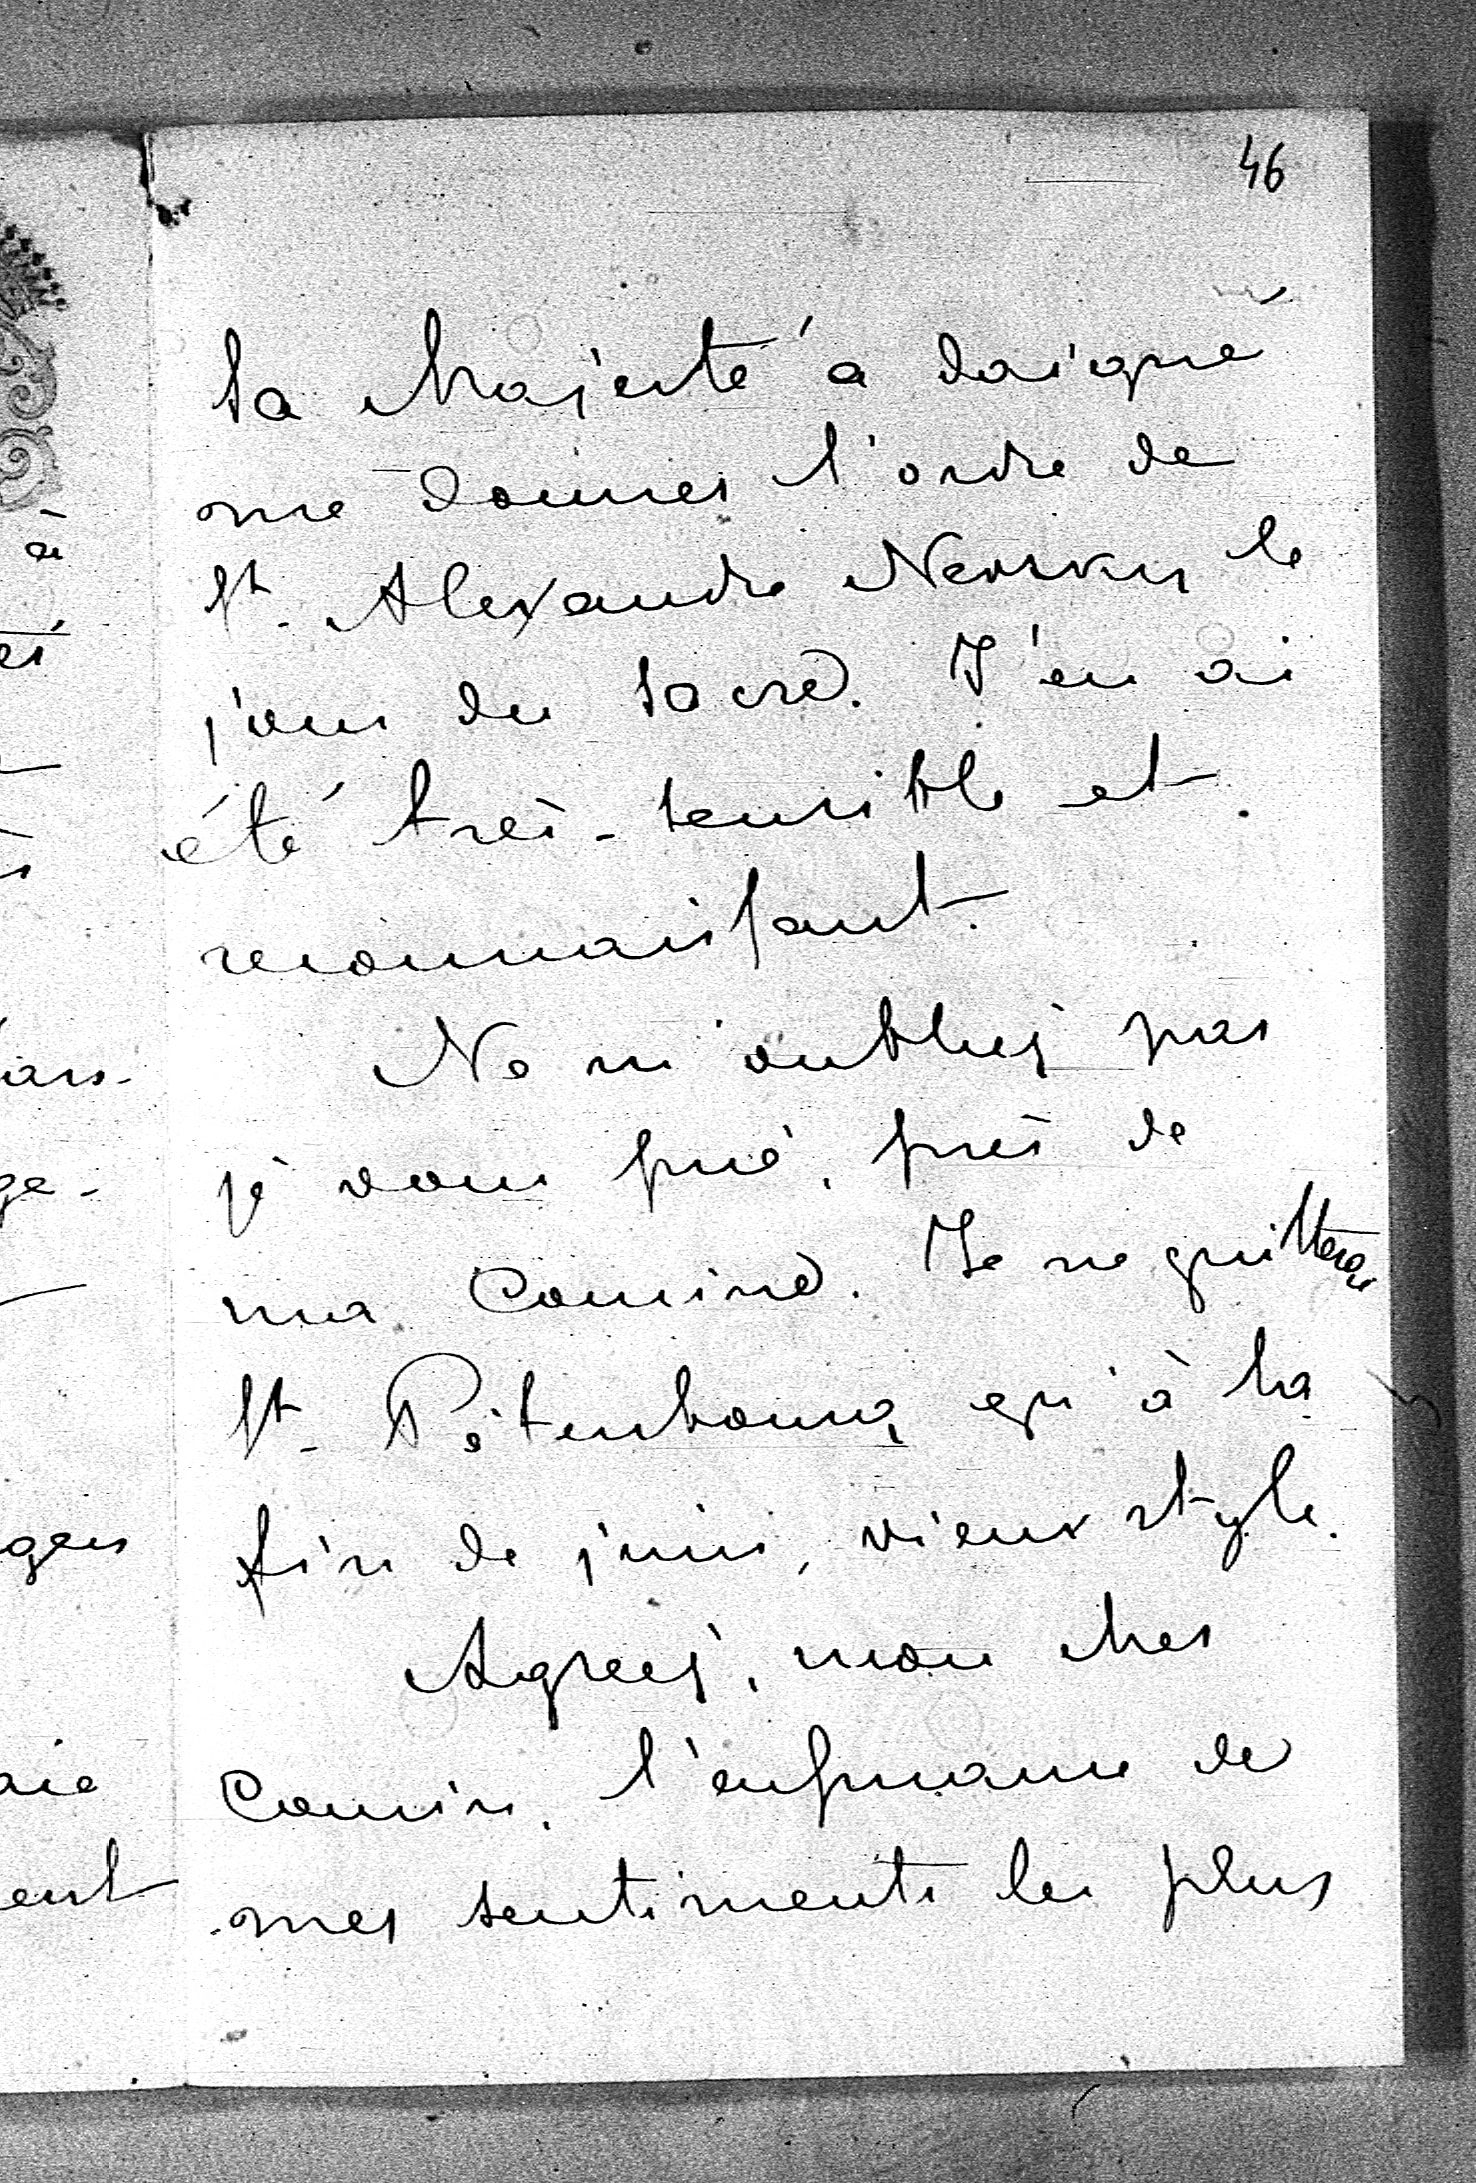 46
Sa Majesté a daigné
me donner l'ordre de
St. Alexandre Nevsky le
jour du sacre. J'en ai
été très-sensible et
reconnaissant.
Ne m'oubliez pas
je vous prie, près de
ma Cousine. Je ne quitterai
St. Pétersbourg qu'à la
fin de juin, vieux style.
Agréez, mon cher
Cousin, l'expression de
mes sentiments les plus
à
ans-
ge-
gers
aie
ent